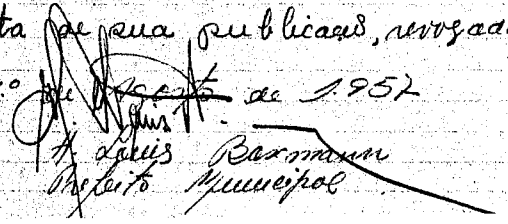 ta de sua publicação, revogad
º de Agosto de 1.952
A. Louis Baxmann
Prefeito Municipal